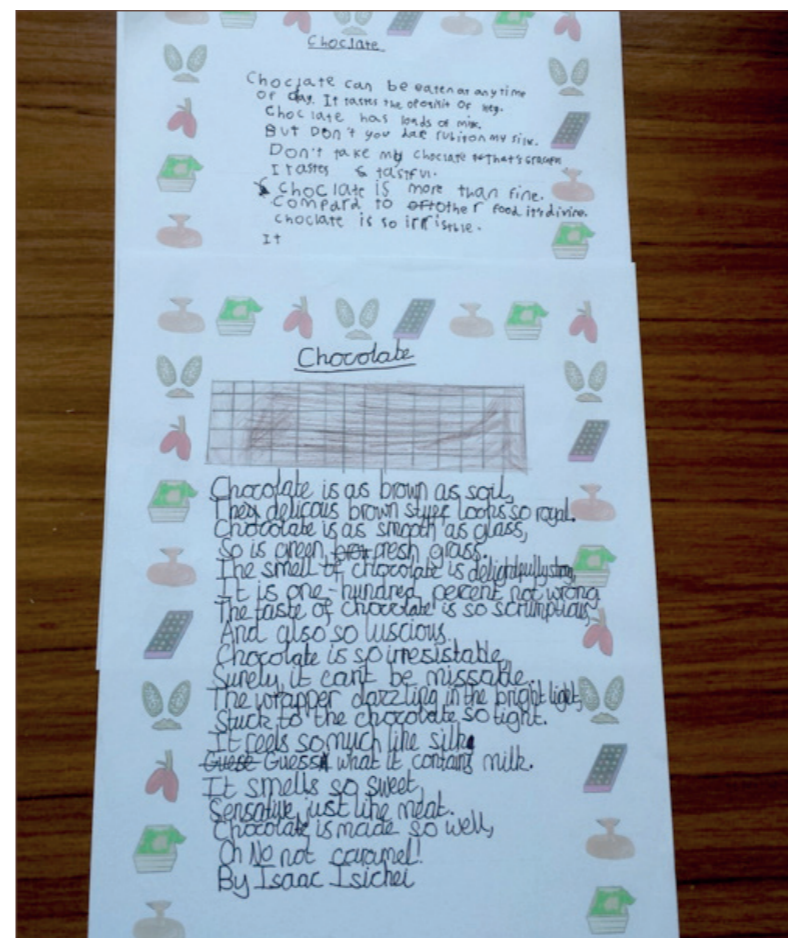 Choclate
Choclate can be eaten at any time
of day. It tastes the of
Choclate has loads of milk.
But Don't you dare rub it on my silk.
Don't take my choclate that's
I tastes & tastful.
Choclate is more than fine.
Compard to other food it's divine.
choclate is so irristible.
It
Chocolate
Chocolate is as brown as soil,
They delicous brown stuff looks so royal.
Chocolate is as smooth as glass,
So is green fresh grass.
The smell of chocolate is delightfully
It is one-hundred percent not wrong
The taste of chocolate is so scrumptious,
And also so luscious.
Chocolate is so irresistable,
Surely it can't be missable.
The wrapper dazzling in the bright light,
Stuck to the chocolate so tight.
It feels so much like silk
Guese Guess what it contains milk.
It smells so sweet,
Sensative, just like meat.
Chocolate is made so well,
Oh No not caramel!
By Isaac Isichei